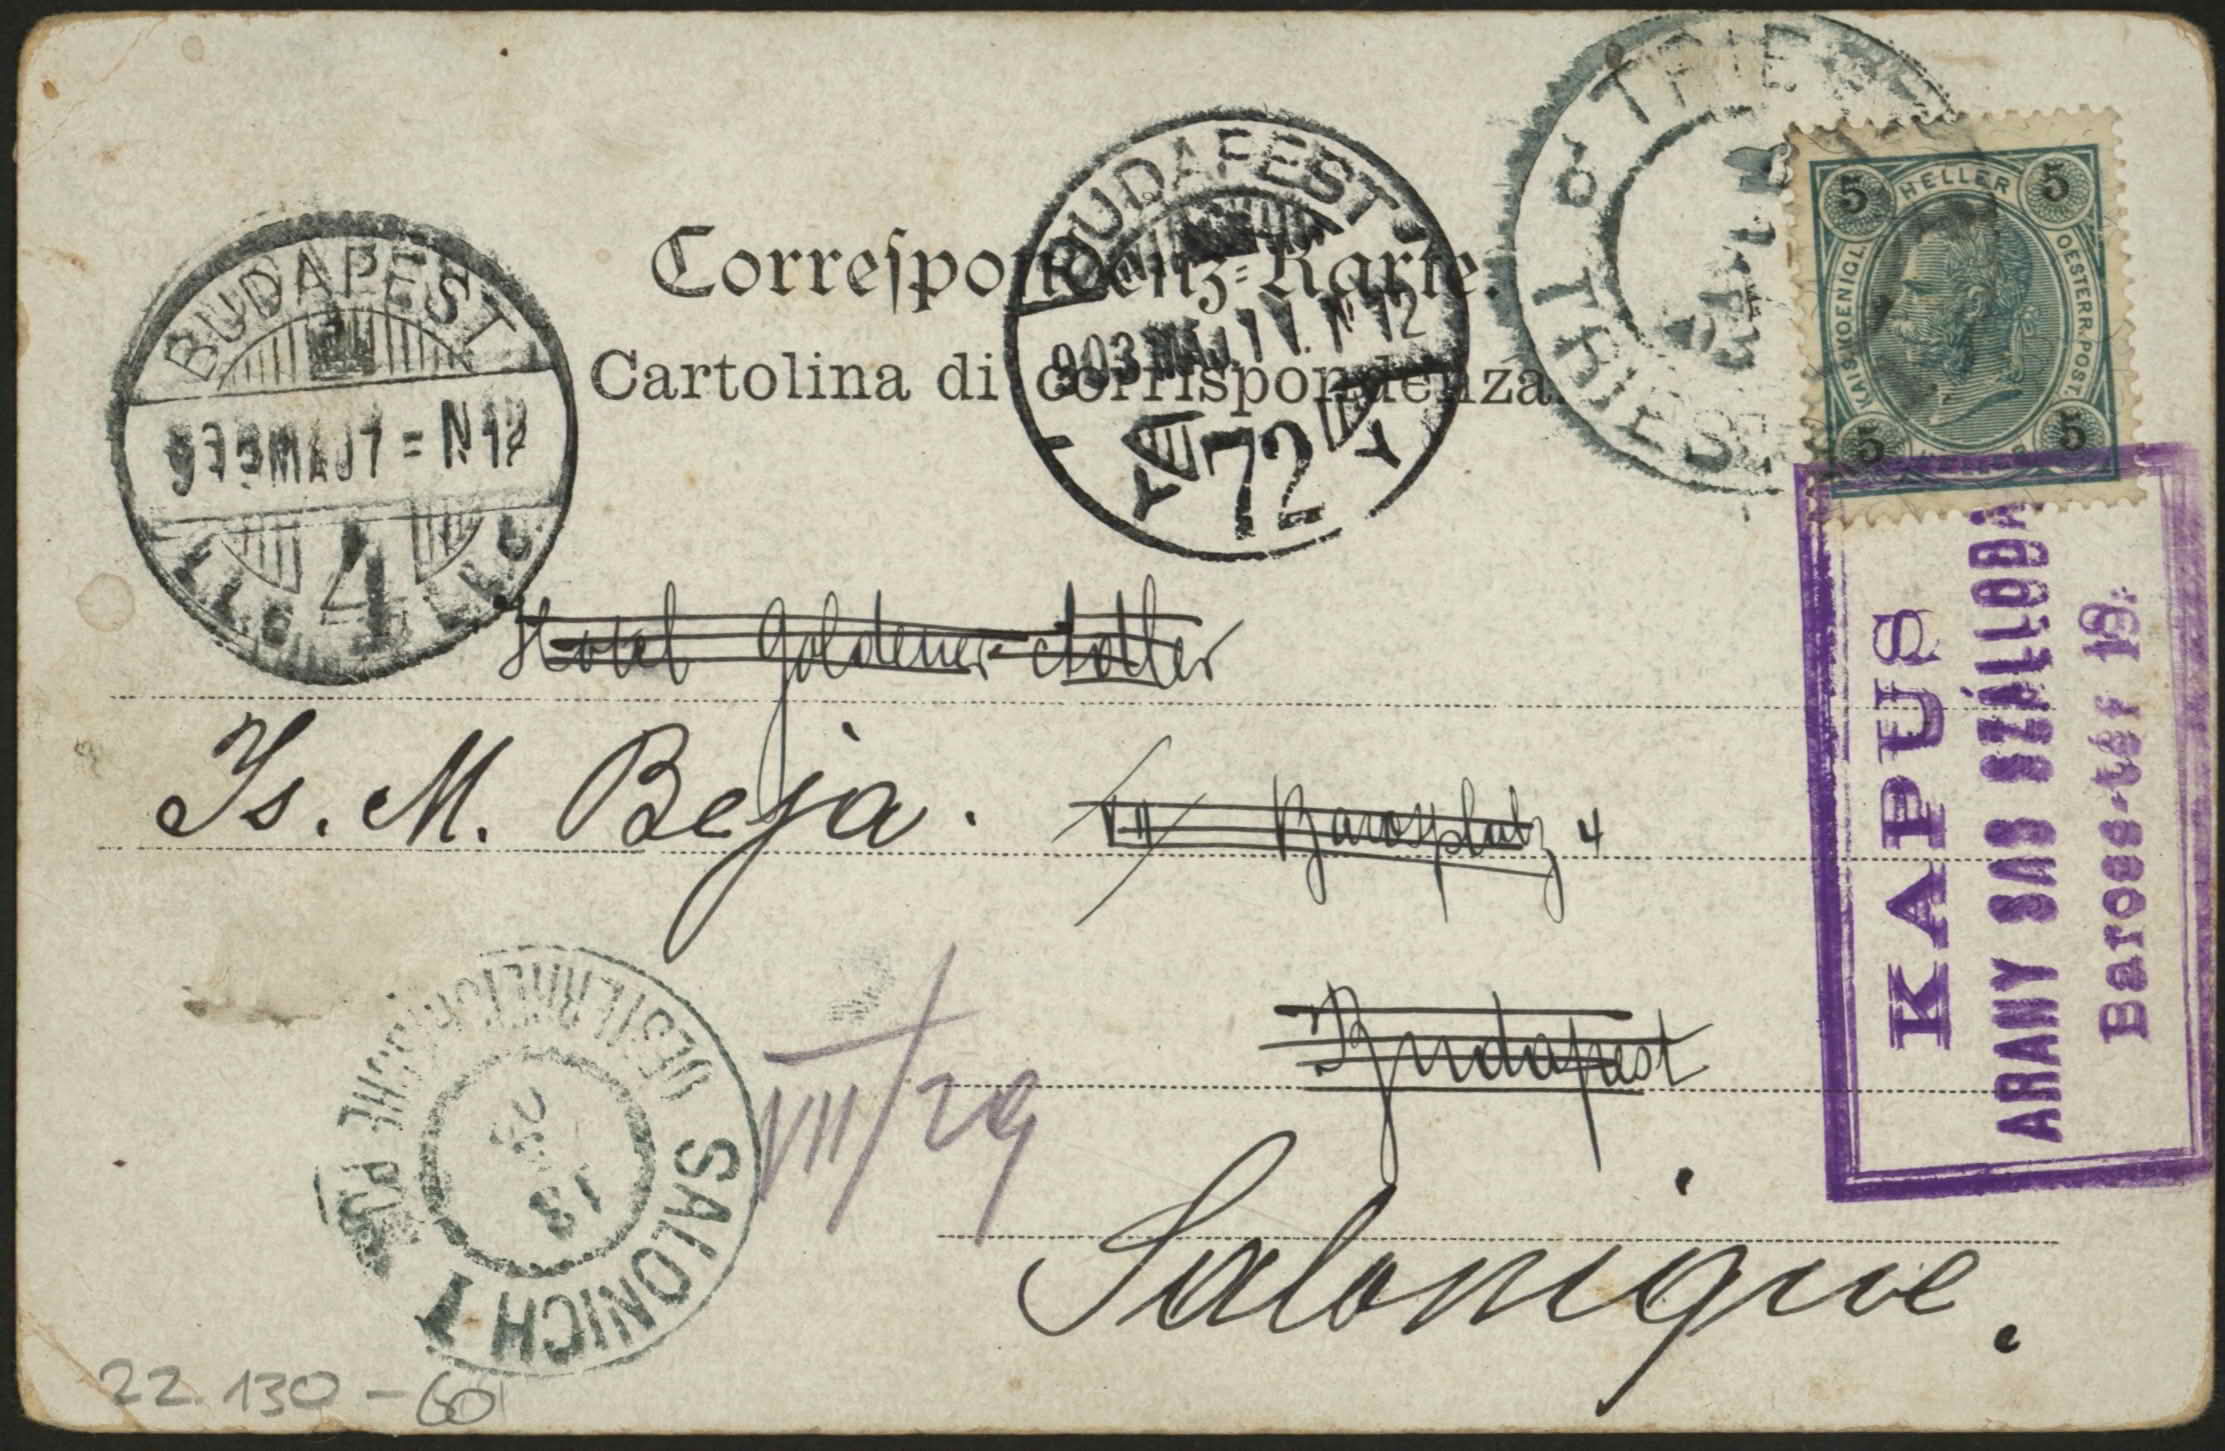 Correſpondenz-Karte.
Cartolina di corrispondenza.
BUDAPEST
4
BUDAPEST
903 MAJ 11. N 12
72
TRIEST
TRIEST
5 HELLER 5
KAIS. KOENIGL.
OESTERR. POST.
5 5
KAPUS
ARANY SAS SZÁLLODA
Baross-tér 19.
Hotel Goldener Adler
Is. M. Beja.
VII Barossplatz 4
Budapest
Salonique.
VII/29
OESTERREICHISCHE POST
SALONICH 1
18
22.130-60